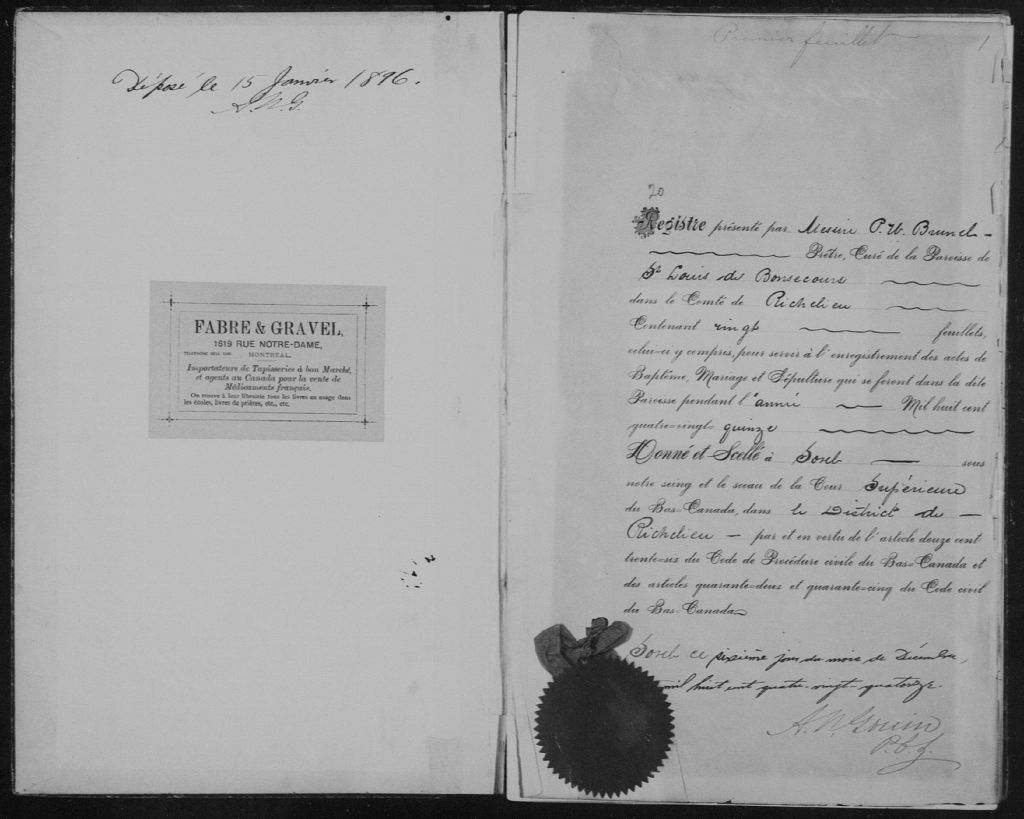 Déposé le 15 Janvier 1896.
A.N.G.
FABRE & GRAVEL,
1619 RUE NOTRE-DAME,
MONTREAL.
Importateurs de Tapisseries à bon Marché,
et agents au Canada pour la vente de
Médicaments français.
On trouve à leur librairie tous les livres en usage dans
les écoles, livres de prières, etc., etc.
Premier feuillet 1
20
Registre présenté par Messire P. U. Brunel
Prêtre, Curé de la Paroisse de
St Louis de Bonsecours
dans le Comté de Richelieu
Contenant vingt feuillets,
celui-ci y compris, pour servir à l'enregistrement des actes de
Baptême, Mariage et Sépulture qui se feront dans la dite
Paroisse pendant l'année Mil huit cent
quatre-vingt-quinze
Donné et Scellé à Sorel sous
notre seing et le sceau de la Cour Supérieure
du Bas-Canada, dans le District de
Richelieu par et en vertu de l'article douze cent
trente-six du Code de Procédure civile du Bas-Canada et
des articles quarante-deux et quarante-cinq du Code civil
du Bas-Canada
Sorel ce sixième jour du mois de Décembre,
mil huit cent quatre-vingt-quatorze.
A. N. Gouin
P.C.S.